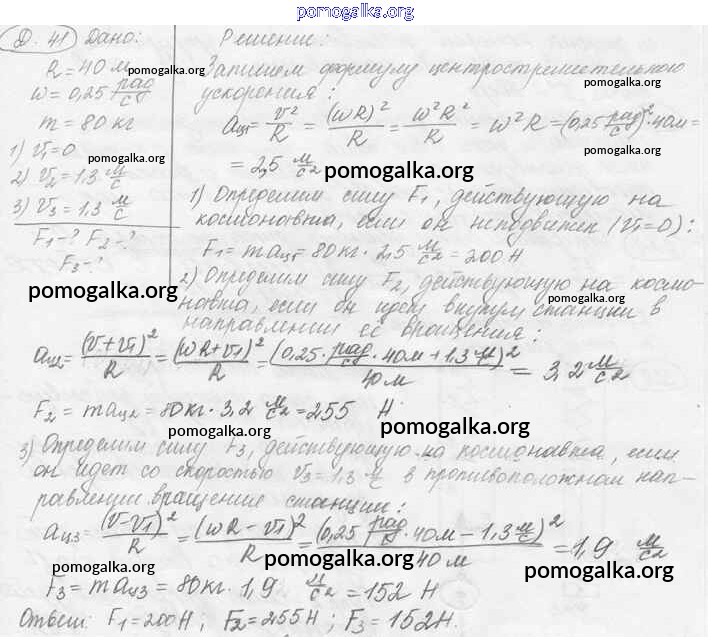 pomogalka.org
Д. 41 Дано:
R = 40 м
ω = 0,25 рад/с
m = 80 кг
1) V₁ = 0
2) V₂ = 1,3 м/с
3) V₃ = 1,3 м/с
F₁ - ? F₂ - ?
F₃ - ?
pomogalka.org
pomogalka.org
pomogalka.org
Решение:
Запишем формулу центростремительного
pomogalka.org
ускорения:
aц₁ = V²/R = (ωR)²/R = ω²R²/R = ω²R = (0,25 рад/с)²·40м =
pomogalka.org
= 2,5 м/с²
pomogalka.org
1) Определим силу F₁, действующую на
космонавта, если он неподвижен (V₁=0):
F₁ = m aц₁ = 80 кг · 2,5 м/с² = 200 Н
2) Определим силу F₂, действующую на космо-
навта, если он идет внутри станции в
pomogalka.org
направлении её вращения:
aц₂ = (V+V₁)²/R = (ωR+V₁)²/R = (0,25 рад/с · 40м + 1,3 м/с)²/40 м = 3,2 м/с²
F₂ = m aц₂ = 80 кг · 3,2 м/с² = 255 Н
pomogalka.org
pomogalka.org
3) Определим силу F₃, действующую на космонавта, если
он идет со скоростью V₃ = 1,3 м/с в противоположном нап-
равлении вращение станции:
aц₃ = (V-V₁)²/R = (ωR - V₁)²/R = (0,25 рад/с · 40м - 1,3 м/с)²/40 м = 1,9 м/с²
pomogalka.org
pomogalka.org
pomogalka.org
F₃ = m aц₃ = 80 кг · 1,9 м/с² = 152 Н
Ответ: F₁ = 200 Н; F₂ = 255 Н; F₃ = 152 Н.